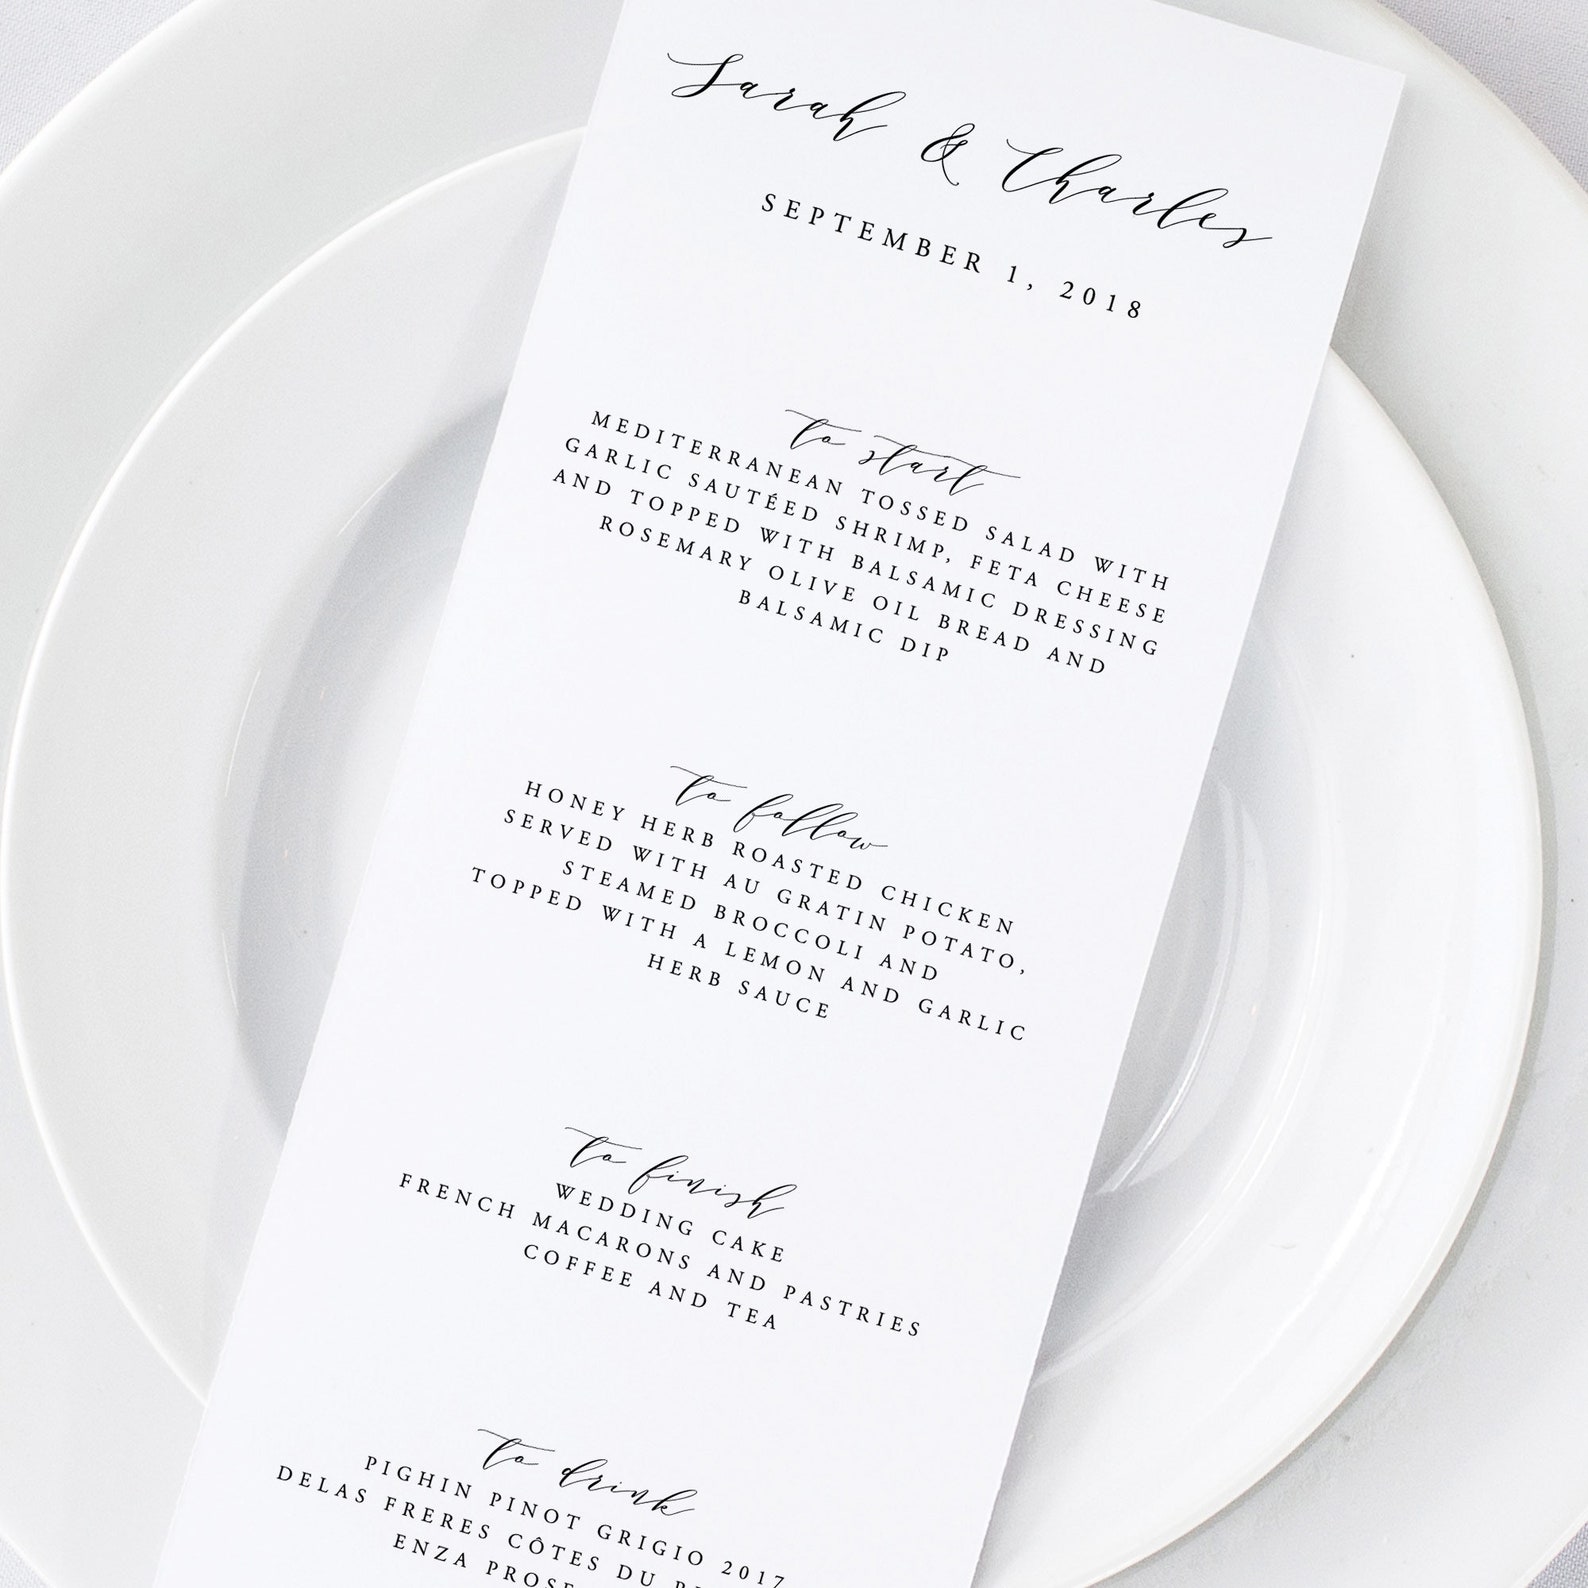 Sarah & Charles
SEPTEMBER 1, 2018
to start
MEDITERRANEAN TOSSED SALAD WITH
GARLIC SAUTÉED SHRIMP, FETA CHEESE
AND TOPPED WITH BALSAMIC DRESSING
ROSEMARY OLIVE OIL BREAD AND
BALSAMIC DIP
to follow
HONEY HERB ROASTED CHICKEN
SERVED WITH AU GRATIN POTATO,
STEAMED BROCCOLI AND
TOPPED WITH A LEMON AND GARLIC
HERB SAUCE
to finish
WEDDING CAKE
FRENCH MACARONS AND PASTRIES
COFFEE AND TEA
to drink
PIGHIN PINOT GRIGIO 2017
DELAS FRERES CÔTES DU
ENZA